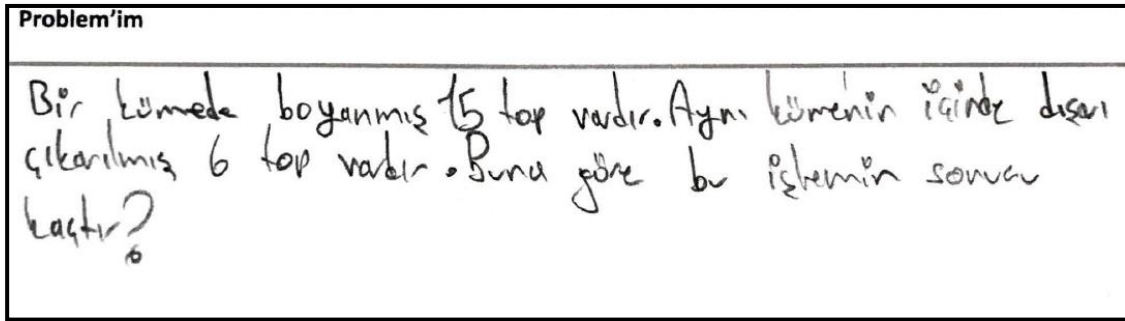 Problem'im
Bir kümede boyanmış 15 top vardır. Aynı kümenin içinde dışarı
çıkarılmış 6 top vardır. Buna göre bu işlemin sonucu
kaçtır?